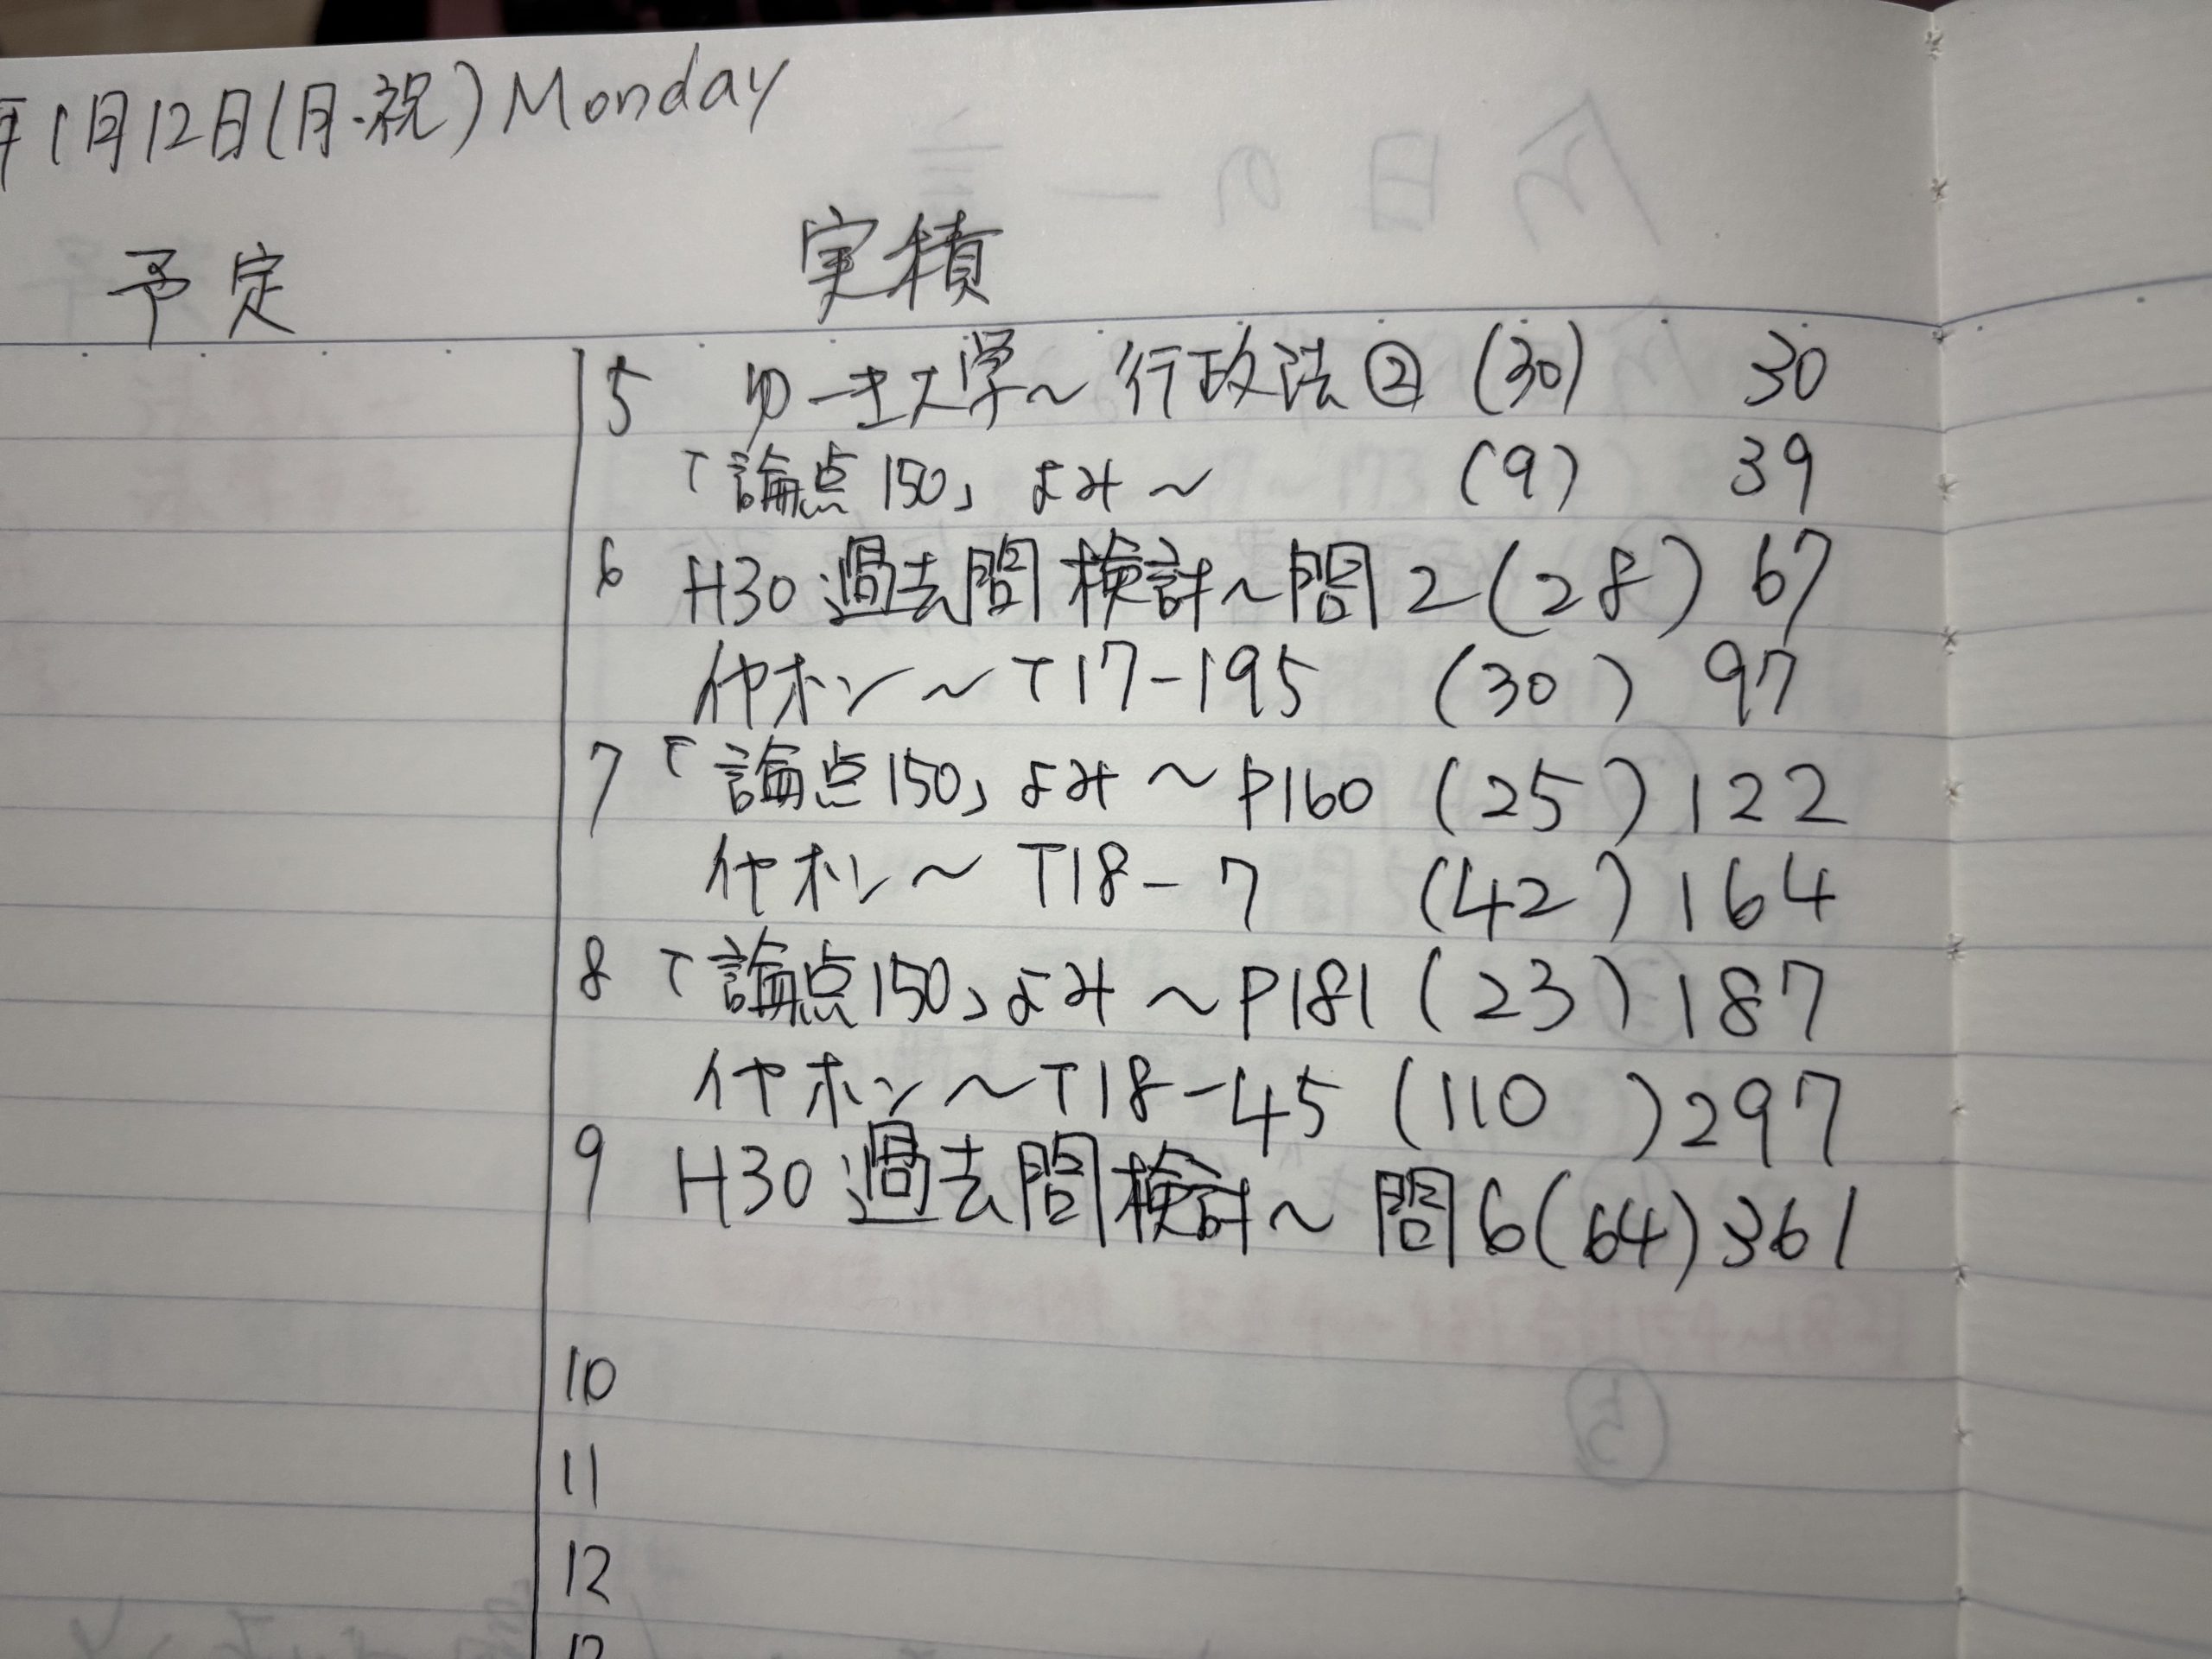 年1月12日(月・祝) Monday
予定 実積
5 ゆーき大学〜行政法② (30) 30
「論点150」よみ〜 (9) 39
6 H30過去問検討〜問2(28) 67
イヤホン〜T17-195 (30) 97
7 「論点150」よみ〜P160 (25) 122
イヤホン〜T18-7 (42) 164
8 「論点150」よみ〜P181 (23) 187
イヤホン〜T18-45 (110) 297
9 H30過去問検討〜問6(64) 361
10
11
12